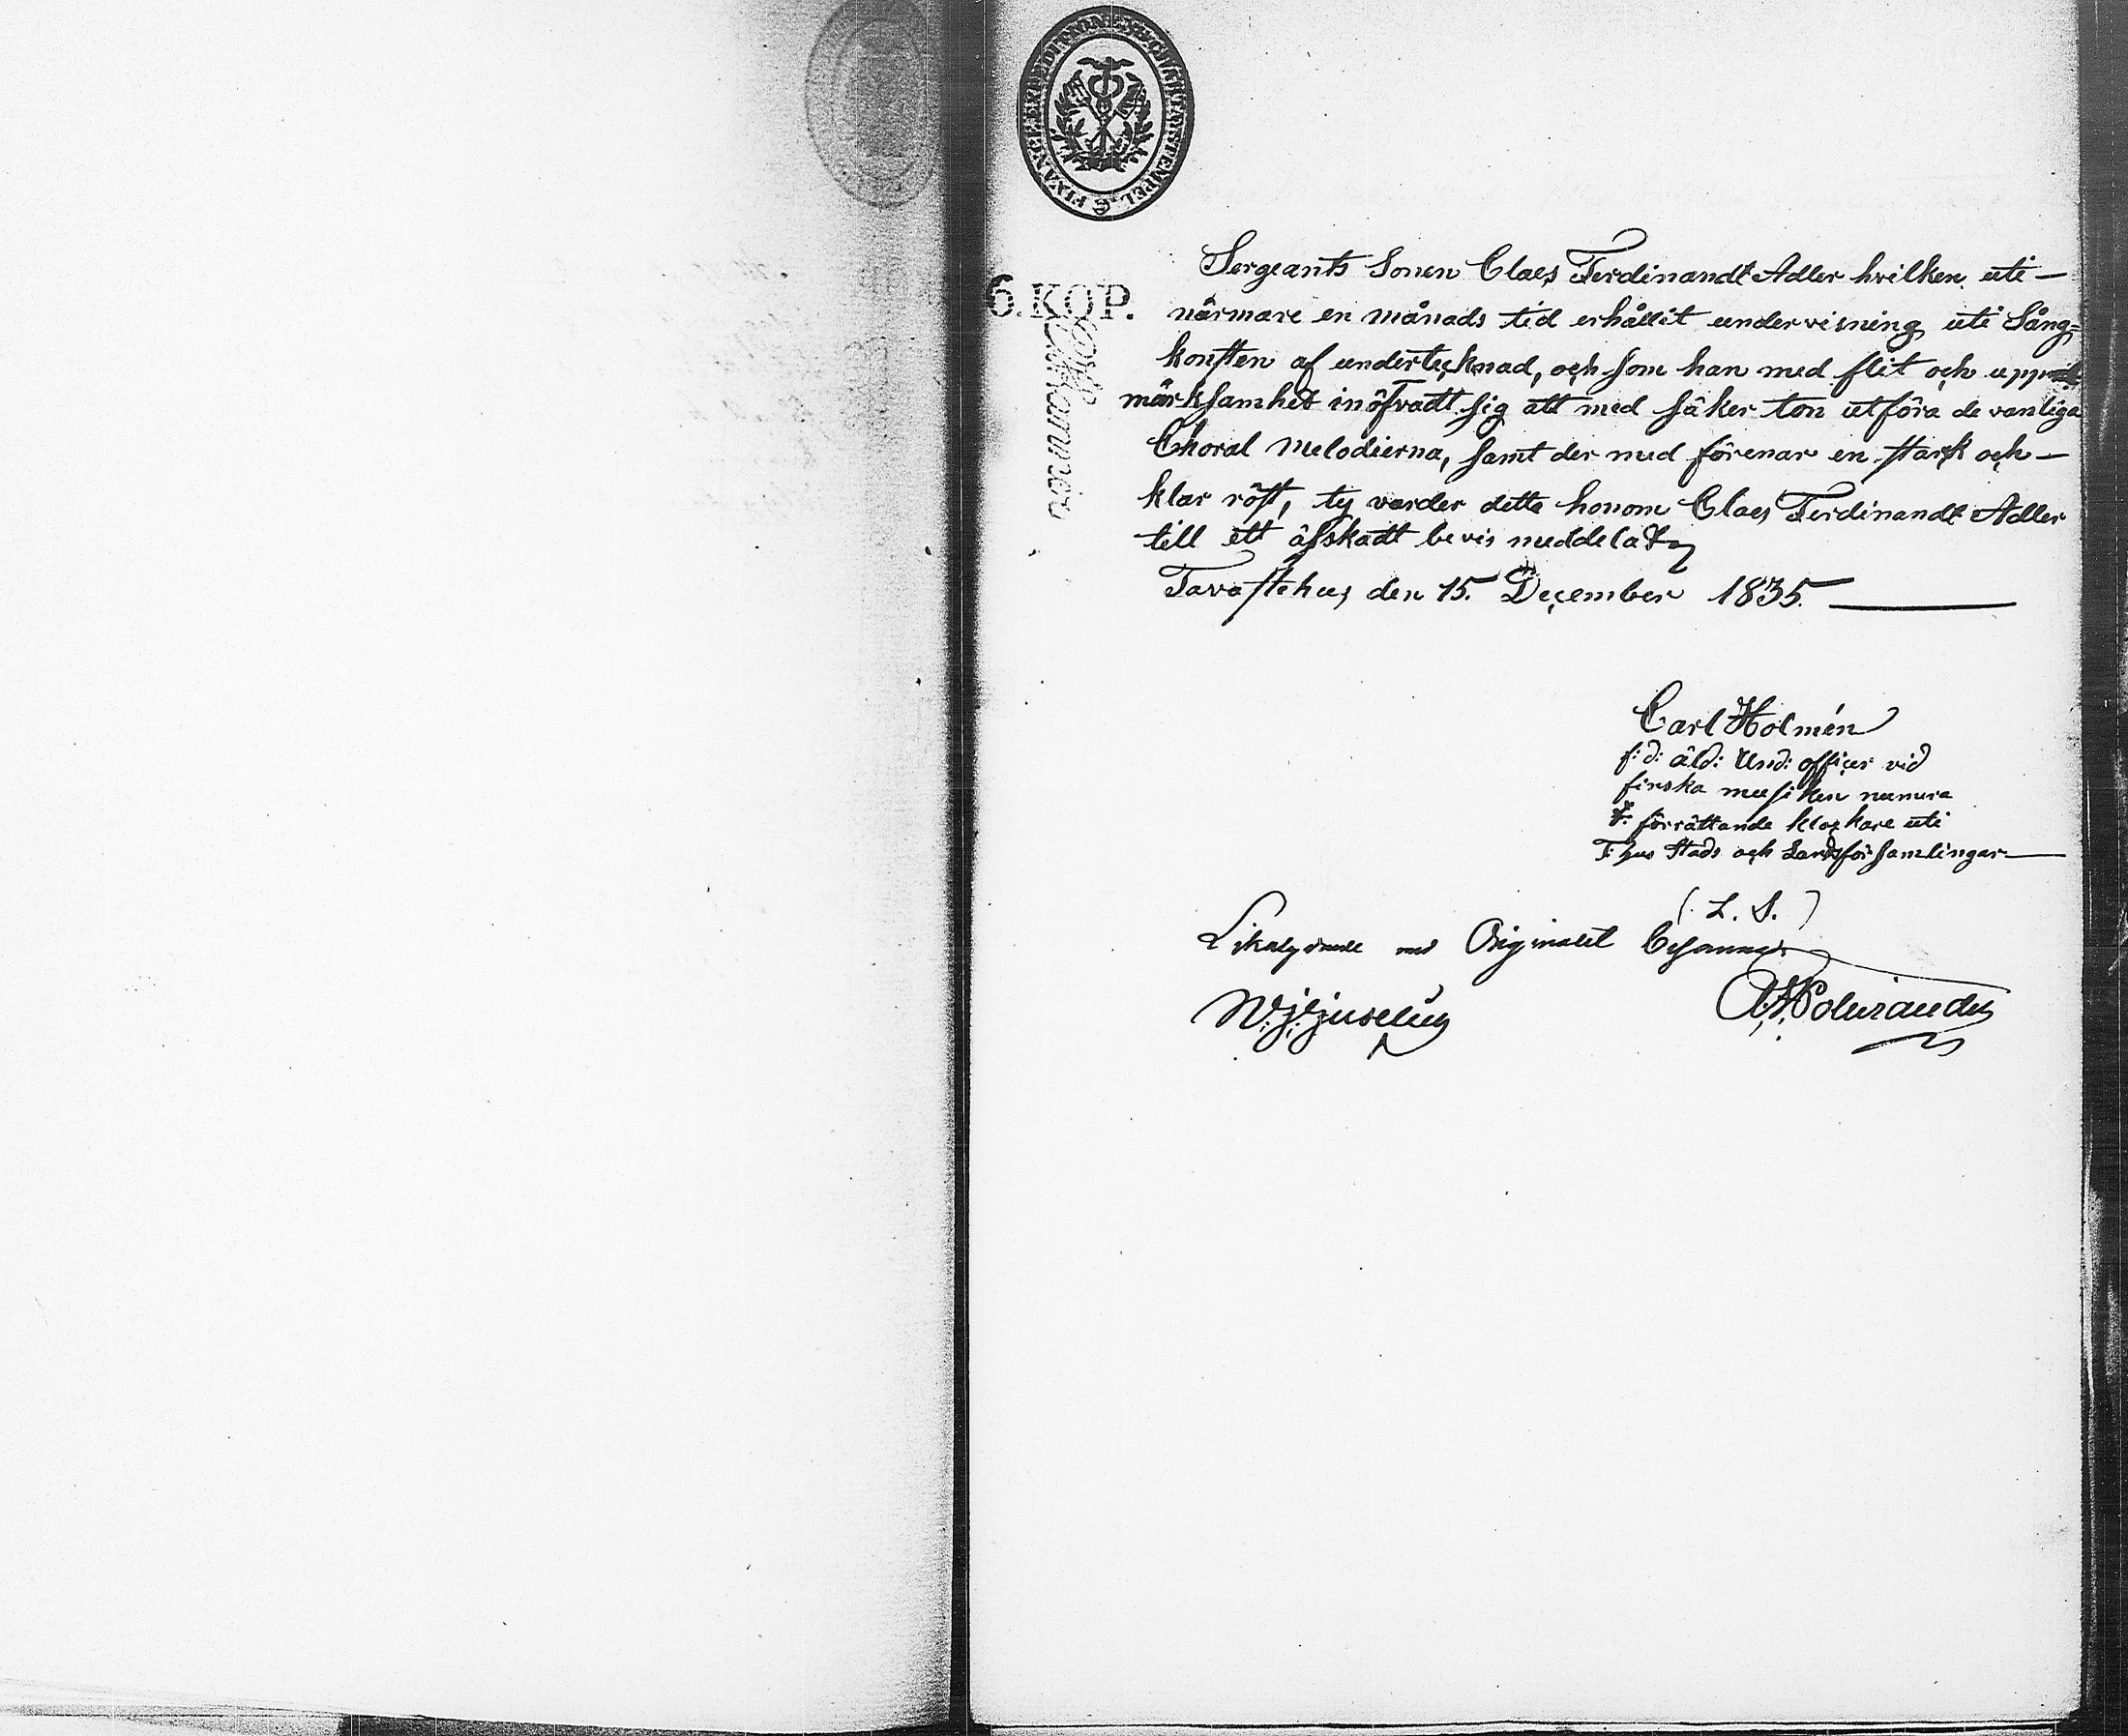 6. KOP.
Sergeants Sonen Claes Ferdinandt Adler hvilken uti—
närmare en månads tid erhållit undervisning uti Sång=
konsten af undertecknad, och som han med flit och upp
märksamhet inöfvadt sig att med säker ton utföra de vanliga
Choral Melodierna, samt der med förenar en stark och—
klar röst, ty varder detta honom Claes Ferdinandt Adler
till ett äfskadt bevis meddelat
Tavastehus den 15. December 1835.
Carl Holmén
f: d: äld: Und: officer vid
finska musiken numera
förrättande klockare uti
T: hus Stads och Landsförsamlingar—
(L. S.)
Likalydande med Originalet